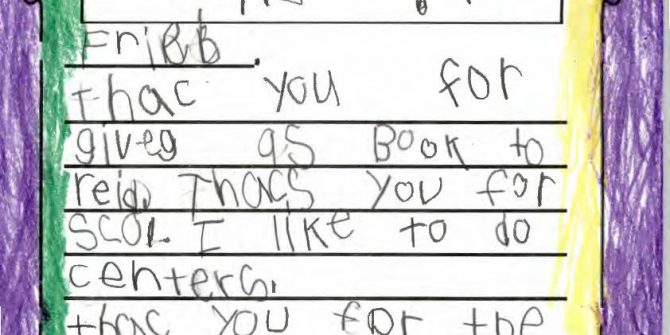 FriBb.
thac you for
giveg as Book to
reid. Thacs you for
scol. I like to do
centers.
thac you for the